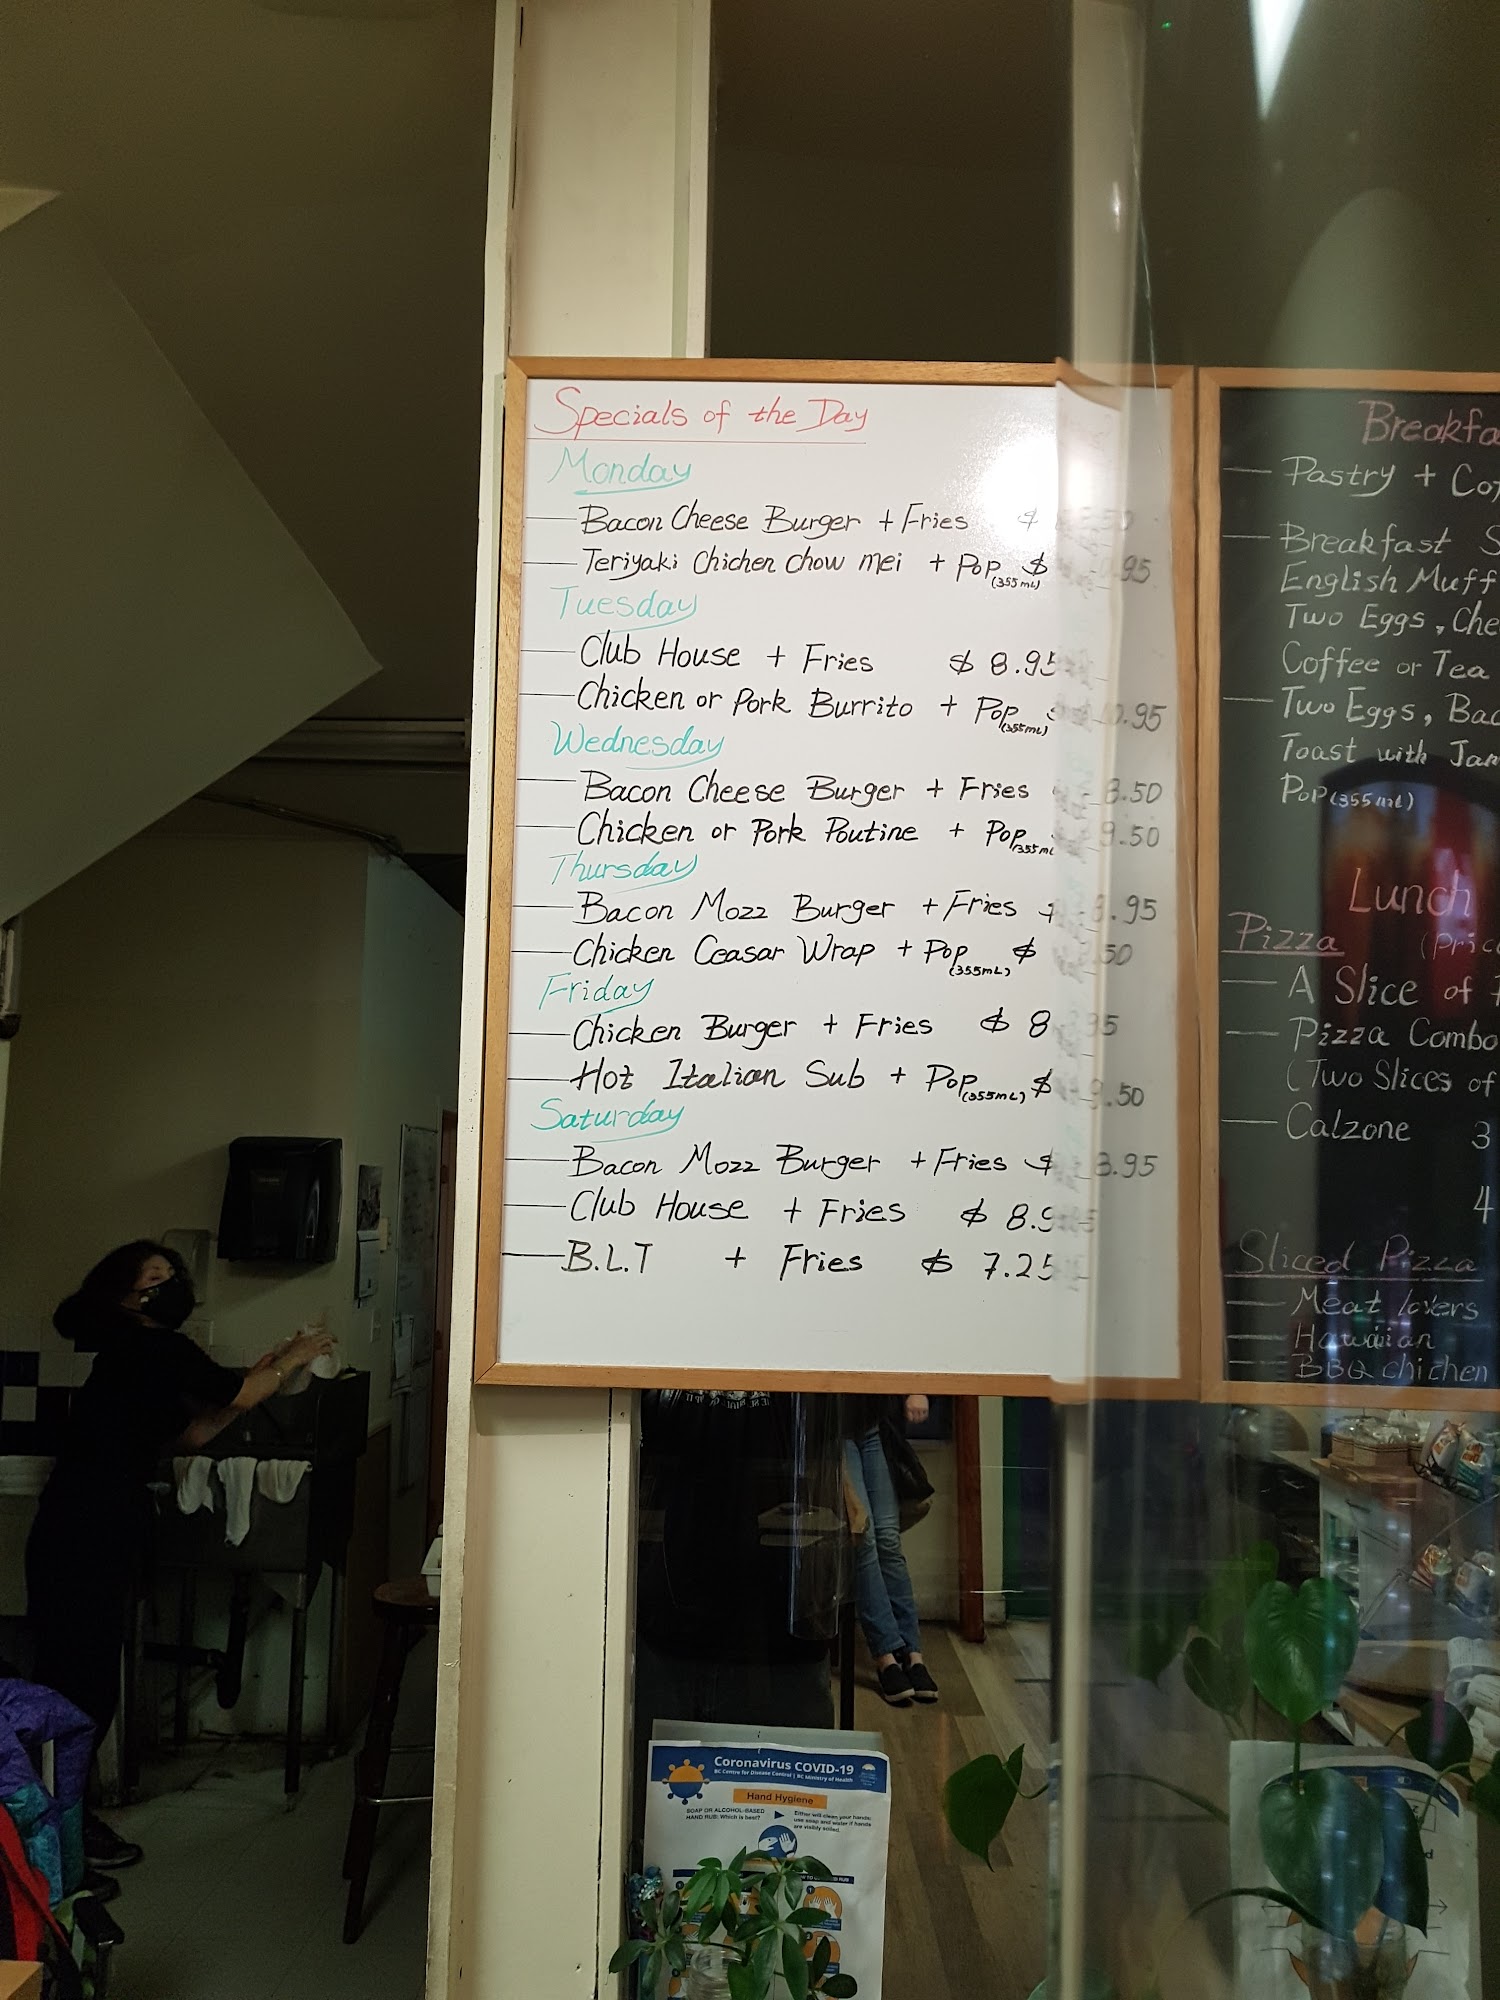 Specials of the Day
Monday
Bacon Cheese Burger + Fries $
Teriyaki Chichen chow mei + Pop (355mL) $ 9.95
Tuesday
Club House + Fries $ 8.95
Chicken or Pork Burrito + Pop (355mL) .95
Wednesday
Bacon Cheese Burger + Fries 8.50
Chicken or Pork Poutine + Pop 355mL 9.50
Thursday
Bacon Mozz Burger + Fries $ 8.95
Chicken Ceasar Wrap + Pop (355mL) $ .50
Friday
Chicken Burger + Fries $ 8.95
Hot Italian Sub + Pop (355mL) $ 9.50
Saturday
Bacon Mozz Burger + Fries $ 8.95
Club House + Fries $ 8.95
B.L.T + Fries $ 7.25
Breakfa
Pastry + Cof
Breakfast S
English Muff
Two Eggs, Che
Coffee or Tea
Two Eggs, Bac
Toast with Jam
Pop (355mL)
Lunch
Pizza (Pric
A Slice of
Pizza Combo
(Two Slices of
Calzone 3
4
Sliced Pizza
Meat lovers
Hawaiian
BBQ chichen
Coronavirus COVID-19
BC Centre for Disease Control | BC Ministry of Health
Hand Hygiene
SOAP OR ALCOHOL-BASED
HAND RUB: Which is best?
Either will clean your hands:
use soap and water if hands
are visibly soiled.